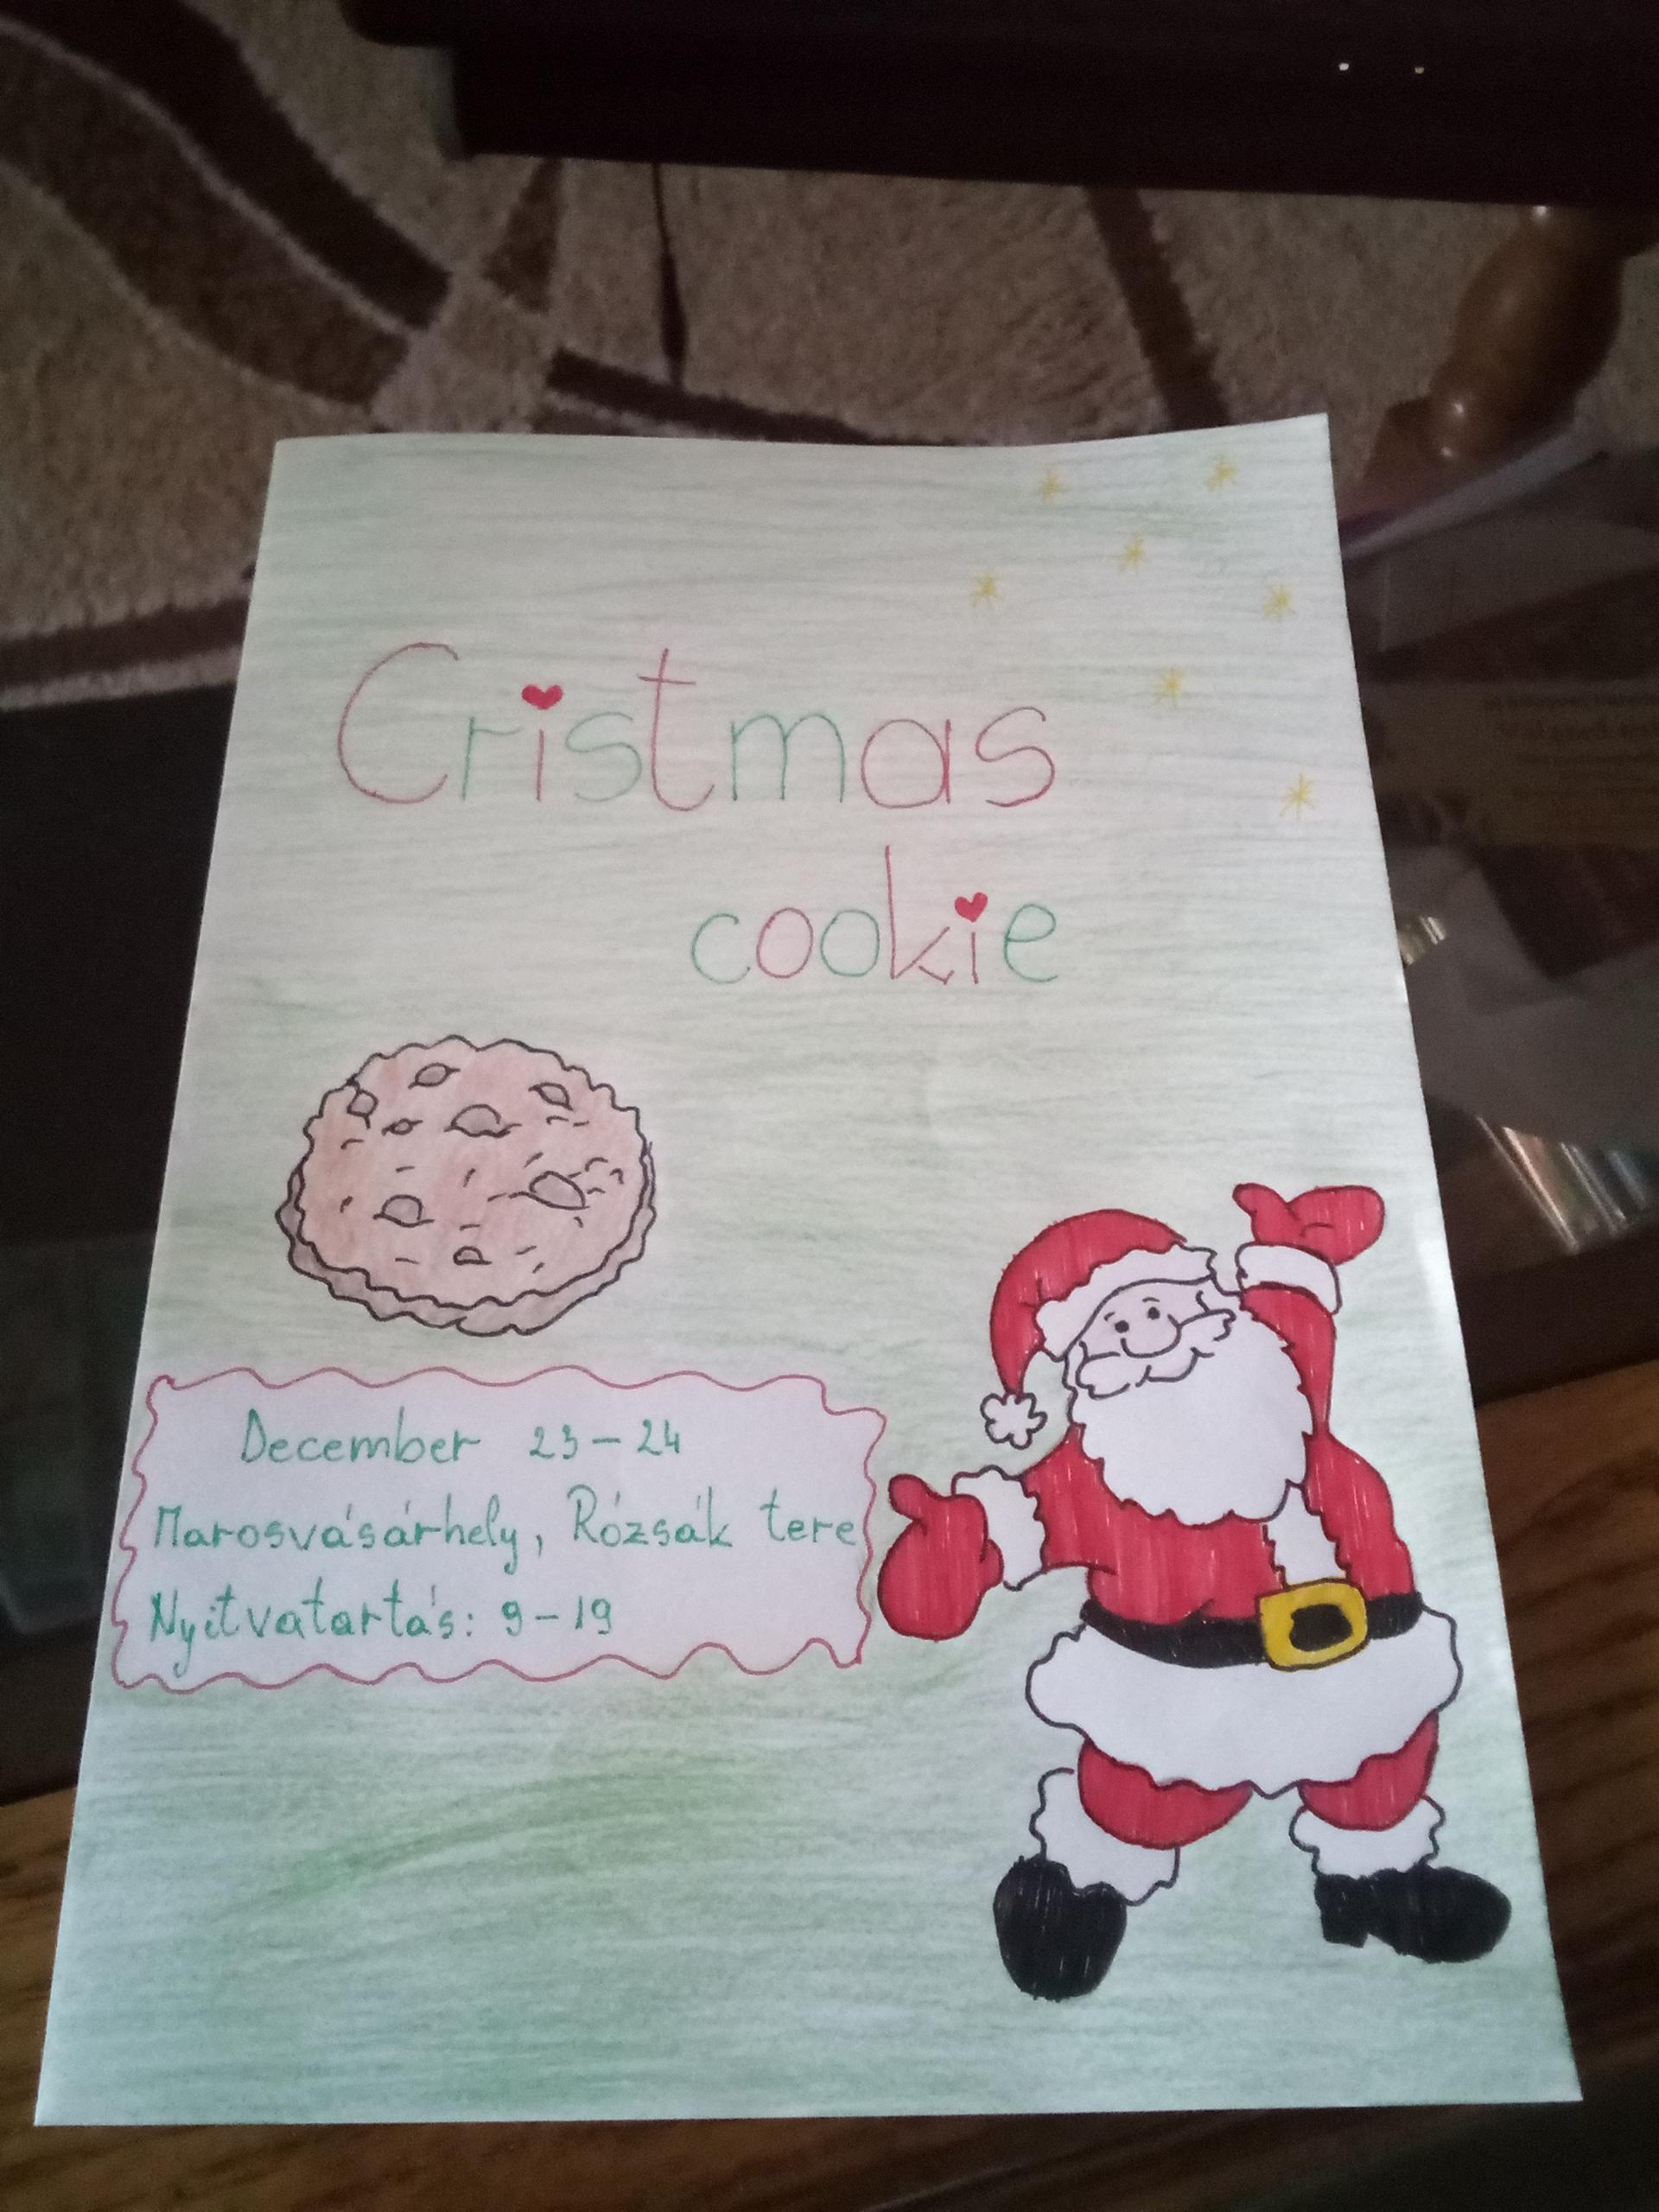 Cristmas
cookie
December 23-24
Marosvásárhely, Rózsák tere
Nyitvatartás: 9-19